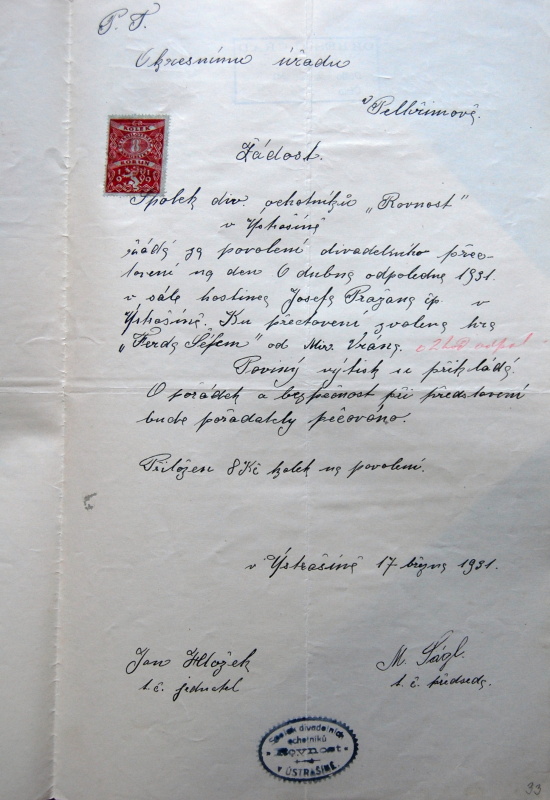 P. T.
Okresnímu úřadu
v Pelhřimově.
KOLEK
8
KORUN
Žádost.
Spolek div. ochotníků „Rovnost"
v Ústrašíně
žádá za povolení divadelního před-
stavení na den 6 dubna odpoledne 1931
v sále hostince Josefa Pražana čp. v
Ústrašíně. Ku představení zvolena hra
„Ferda Šéfem" od Mir. Vrána.
Poviný výtisk se přikládá.
O pořádek a bezpečnost při představení
bude pořadately pěčováno.
Přiložen 8 Kč kolek na povolení.
v Ústrašíně 17 března 1931.
Jan Hložek
t. č. jednatel
M. Ságl.
t. č. předseda.
Spolek divadelních
ochotníků
Rovnost
v ÚSTRAŠÍNĚ.
93